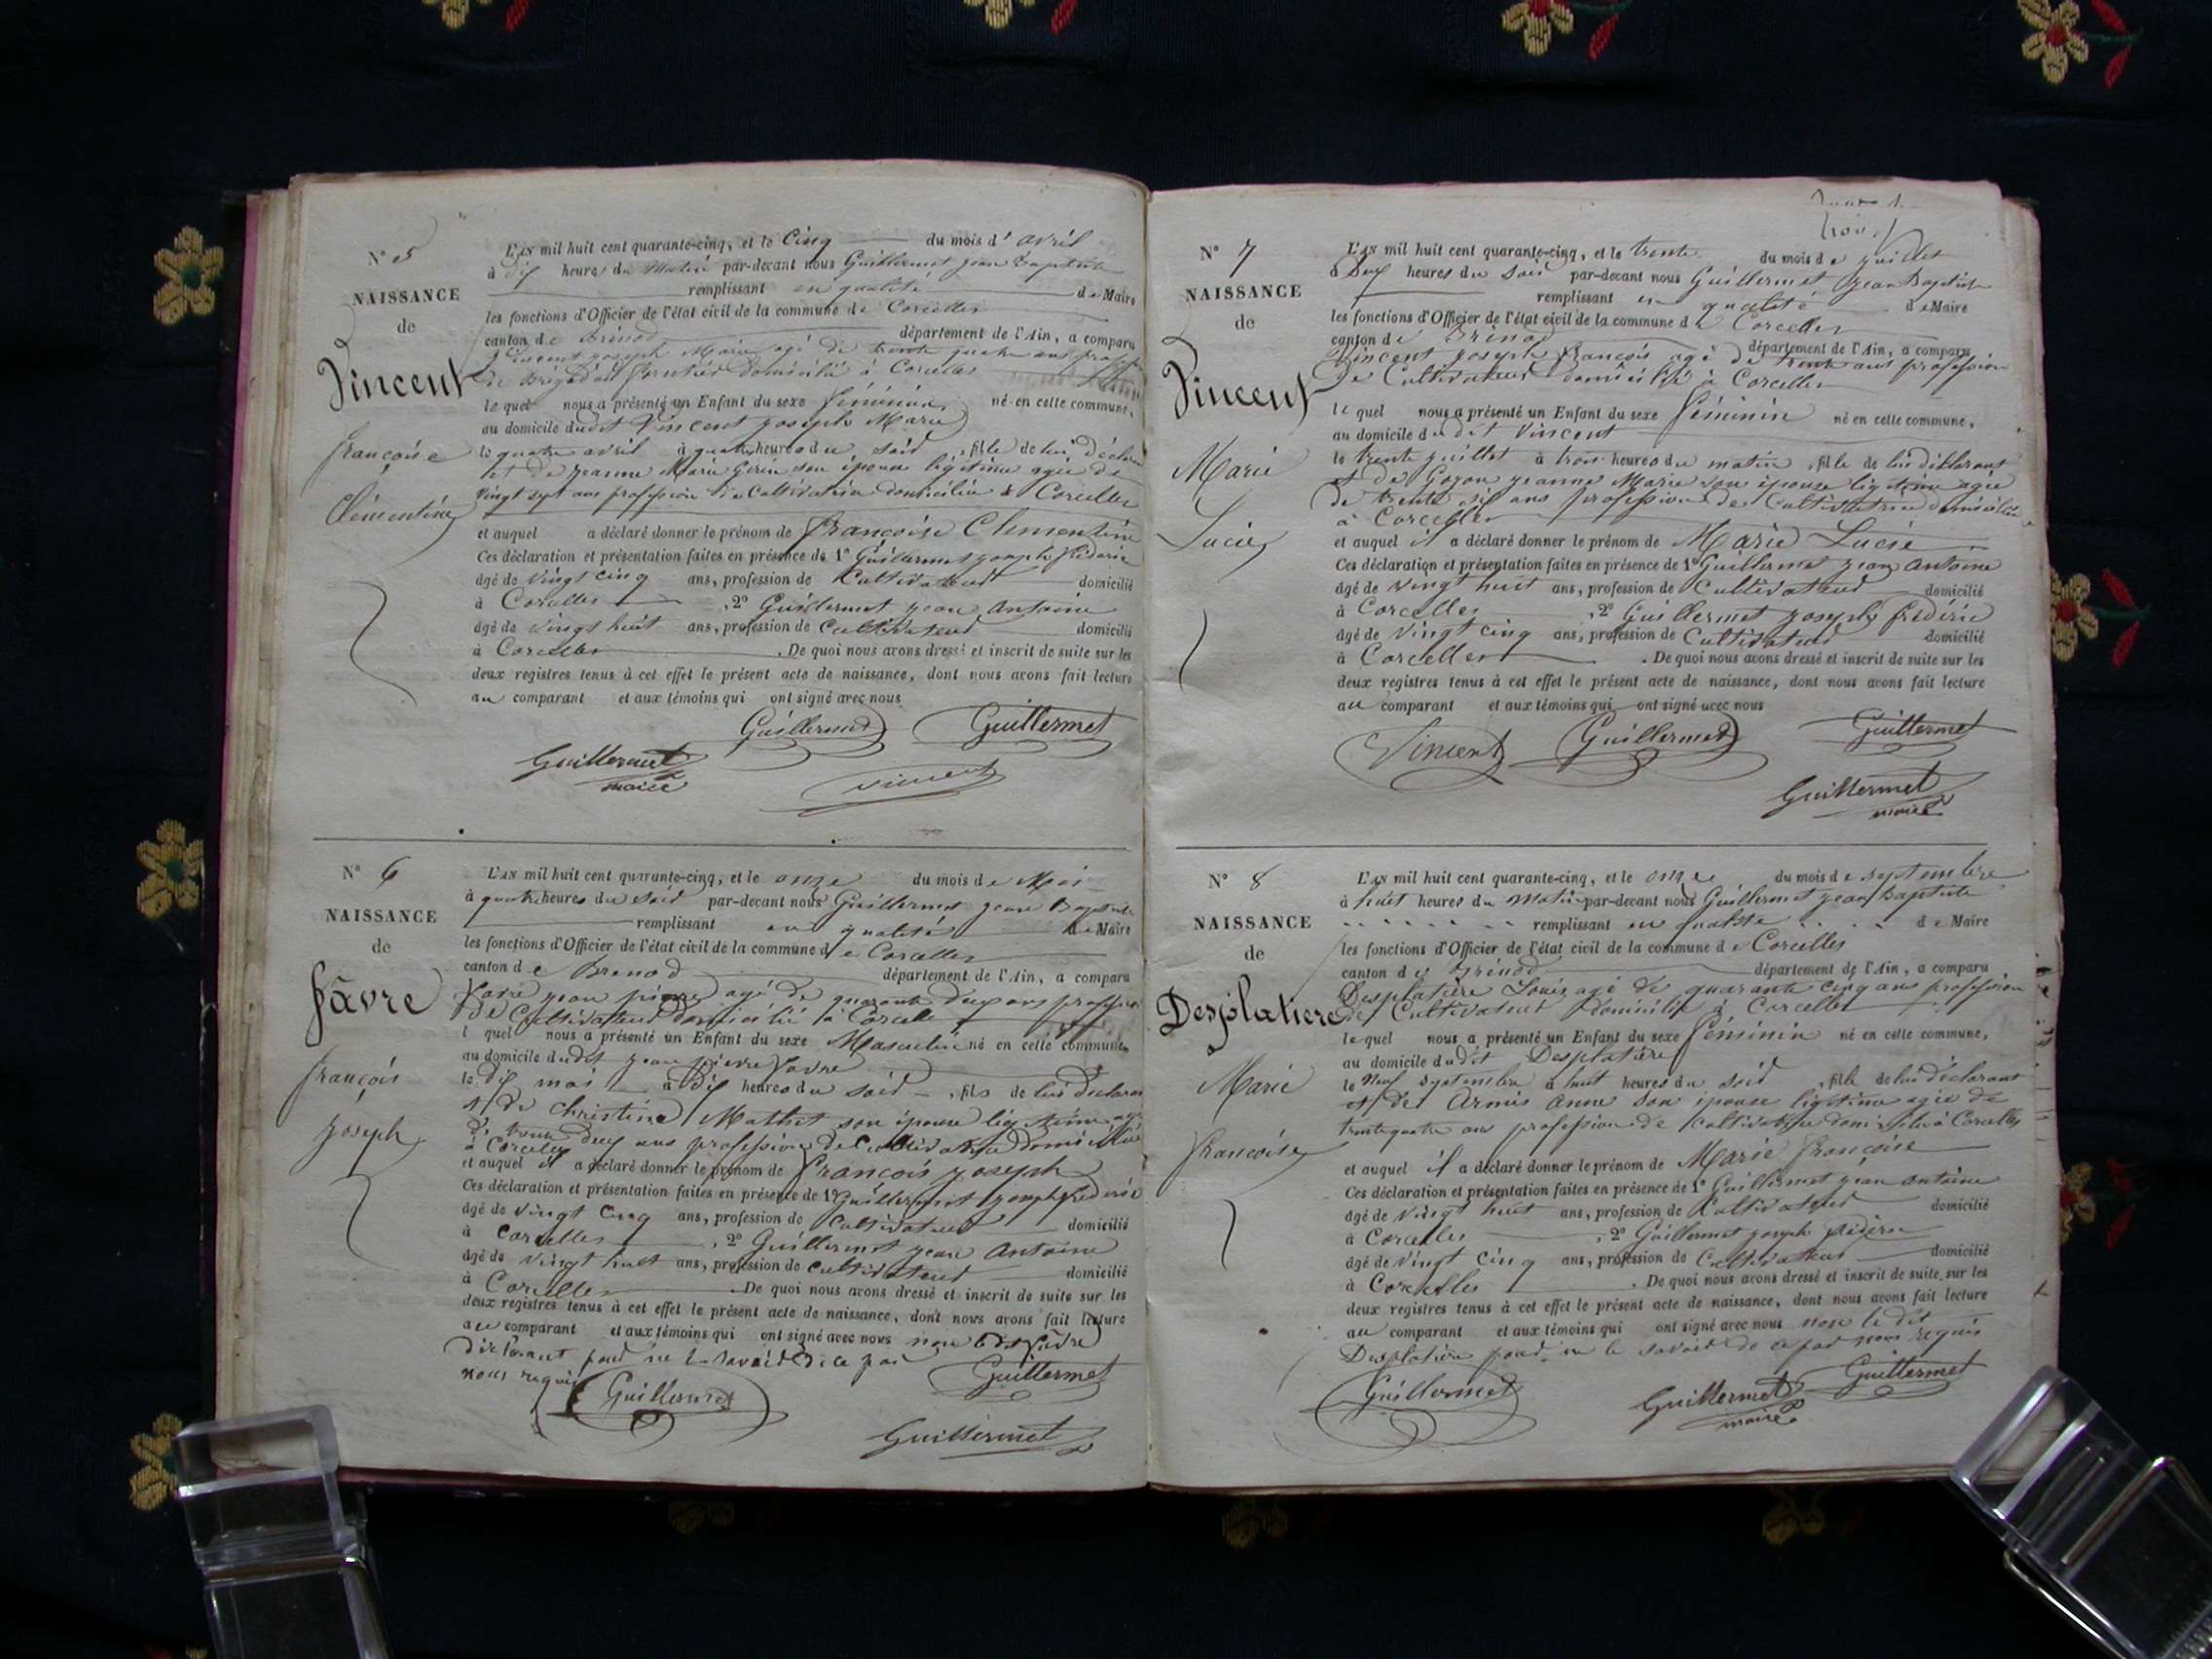 N° 5
NAISSANCE
de
Vincent
françoise
Clémentine
L'AN mil huit cent quarante-cinq, et le Cinq du mois d' avril
à dix heures du Matin par-devant nous Guillermet jean Baptiste
remplissant en qualité de Maire
les fonctions d'Officier de l'état civil de la commune de Corcelles
canton de Brénod département de l'Ain, a comparu
Vincent joseph Marie agé de trente quatre ans
de Brigadier forestier domicilié à Corcelles
lequel nous a présenté un Enfant du sexe féminin né en cette commune,
au domicile dudit Vincent joseph Marie
le quatre avril à quatre heures du soir, fille de lui déclarant
et de jeanne Marie son épouse légitime agée de
vingt sept ans profession de Cultivatrice domiciliée à Corcelles
et auquel a déclaré donner le prénom de françoise Clementine
Ces déclaration et présentation faites en présence de 1° Guillermet joseph fréderic
âgé de vingt cinq ans, profession de Cultivateur domicilié
à Corcelles, 2° Guillermet jean Antoine
âgé de vingt huit ans, profession de Cultivateur domicilié
à Corcelles. De quoi nous avons dressé et inscrit de suite sur les
deux registres tenus à cet effet le présent acte de naissance, dont nous avons fait lecture
au comparant et aux témoins qui ont signé avec nous
Guillermet Guillermet
Guillermet
maire
vincent
N° 6
NAISSANCE
de
fâvre
françois
joseph
L'AN mil huit cent quarante-cinq, et le onze du mois de Mai
à quatre heures du soir par-devant nous Guillermet jean Baptiste
remplissant en qualité de Maire
les fonctions d'Officier de l'état civil de la commune de Corcelles
canton de Brenod département de l'Ain, a comparu
favre jean pierre agé de quarante deux ans profession
de Cultivateur domicilié à Corcelle
lequel nous a présenté un Enfant du sexe Masculin né en cette commune,
au domicile dudit jean pierre favre
le dix mai à dix heures du soir, fils de lui déclarant
et de christine Mathet son épouse légitime
de trente deux ans profession de Cultivatrice domiciliée
à Corcelles
et auquel il a déclaré donner le prénom de françois joseph
Ces déclaration et présentation faites en présence de 1° Guillermet joseph fréderic
âgé de vingt cinq ans, profession de Cultivateur domicilié
à Corcelles, 2° Guillermet jean Antoine
âgé de vingt huit ans, profession de Cultivateur domicilié
à Corcelles. De quoi nous avons dressé et inscrit de suite sur les
deux registres tenus à cet effet le présent acte de naissance, dont nous avons fait lecture
au comparant et aux témoins qui ont signé avec nous non ledit fâvre
déclarant pour ne le savoir de ce par
nous requis
Guillermet Guillermet
Guillermet
N° 7
NAISSANCE
de
Vincent
Marie
Lucie
L'AN mil huit cent quarante-cinq, et le trente du mois de juillet
à Dux heures du soir par-devant nous Guillermet jean Baptiste
remplissant en qualité de Maire
les fonctions d'Officier de l'état civil de la commune de Corcelles
canton de Brénod département de l'Ain, a comparu
Vincent joseph françois agé de trente ans profession
de Cultivateur domicilié à Corcelles
lequel nous a présenté un Enfant du sexe féminin né en cette commune,
au domicile dudit Vincent
le trente juillet à trois heures du matin, fille de lui déclarant
et de jeanne Marie son épouse légitime agée
de trente six ans profession de Cultivatrice domiciliée
à Corcelles
et auquel il a déclaré donner le prénom de Marie Lucie
Ces déclaration et présentation faites en présence de 1° Guillermet jean antoine
âgé de vingt huit ans, profession de Cultivateur domicilié
à Corcelles, 2° Guillermet joseph fréderic
âgé de vingt cinq ans, profession de Cultivateur domicilié
à Corcelles. De quoi nous avons dressé et inscrit de suite sur les
deux registres tenus à cet effet le présent acte de naissance, dont nous avons fait lecture
au comparant et aux témoins qui ont signé avec nous
Vincent Guillermet Guillermet
Guillermet
maire
N° 8
NAISSANCE
de
Desplatiere
Marie
françoise
L'AN mil huit cent quarante-cinq, et le onze du mois de septembre
à huit heures du matin par-devant nous Guillermet jean Baptiste
remplissant en qualité de Maire
les fonctions d'Officier de l'état civil de la commune de Corcelles
canton de Brénod département de l'Ain, a comparu
Desplatière Louis agé de quarante cinq ans profession
de Cultivateur domicilié à Corcelles
lequel nous a présenté un Enfant du sexe féminin né en cette commune,
au domicile dudit Desplatière
le Neuf septembre à huit heures du soir, fille de lui déclarant
et de Armis anne son épouse légitime agée de
trente quatre ans profession de Cultivatrice domiciliée à Corcelles
et auquel il a déclaré donner le prénom de Marie françoise
Ces déclaration et présentation faites en présence de 1° Guillermet jean antoine
âgé de vingt huit ans, profession de Cultivateur domicilié
à Corcelles, 2° Guillermet joseph fréderic
âgé de vingt cinq ans, profession de Cultivateur domicilié
à Corcelles. De quoi nous avons dressé et inscrit de suite sur les
deux registres tenus à cet effet le présent acte de naissance, dont nous avons fait lecture
au comparant et aux témoins qui ont signé avec nous non le dit
Desplatière pour ne le savoir de ce par nous requis
Guillermet Guillermet Guillermet
maire